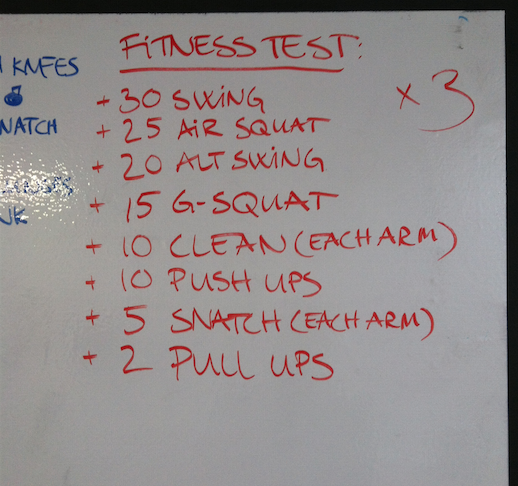 FITNESS TEST:
x 3
+ 30 SWING
+ 25 AIR SQUAT
+ 20 ALT SWING
+ 15 G-SQUAT
+ 10 CLEAN (EACH ARM)
+ 10 PUSH UPS
+ 5 SNATCH (EACH ARM)
+ 2 PULL UPS
KNFES
NATCH
NK